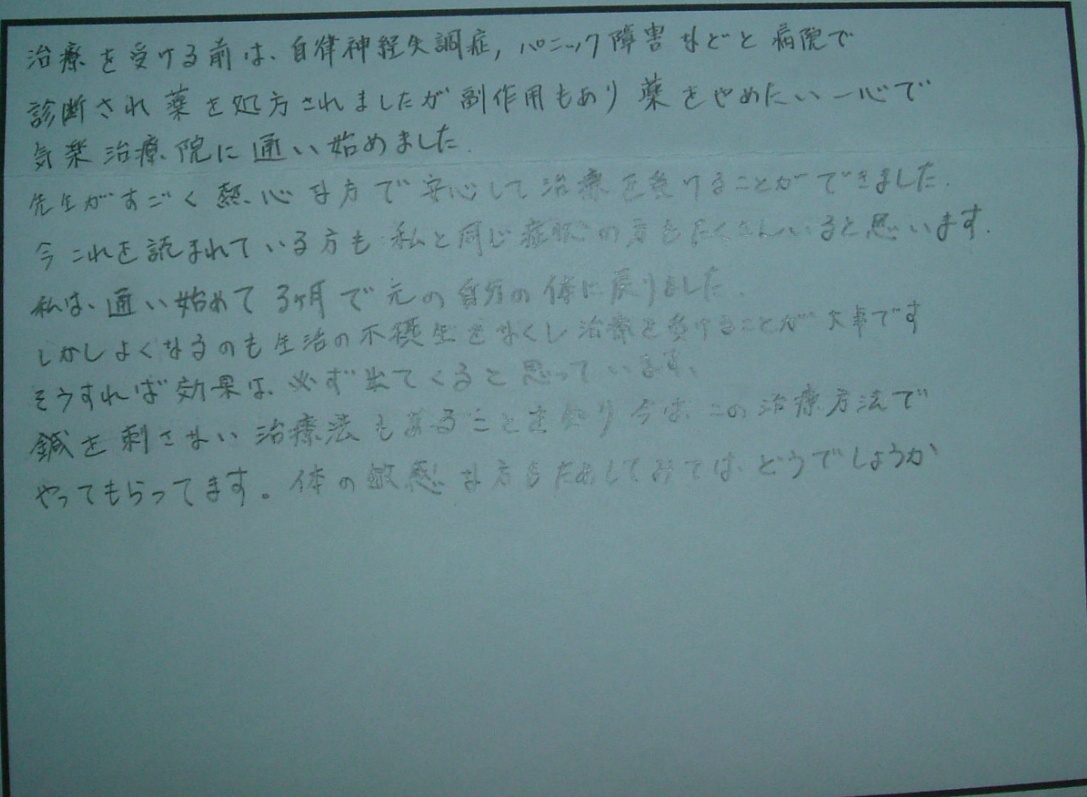 治療を受ける前は、自律神経失調症，パニック障害などと病院で
診断され薬を処方されましたが副作用もあり薬をやめたい一心で
気楽治療院に通い始めました．
先生がすごく熱心な方で安心して治療を受けることができました．
今これを読まれている方も私と同じ症状の方もたくさんいると思います．
私は、通い始めて3ヶ月で元の自分の体に戻りました．
しかしよくなるのも生活の不摂生をなくし治療を受けることが大事です
そうすれば効果は、必ず出てくると思っています、
鍼を刺さない治療法もあることを知り今は、この治療方法で
やってもらってます。体の敏感な方もためしてみてはどうでしょうか